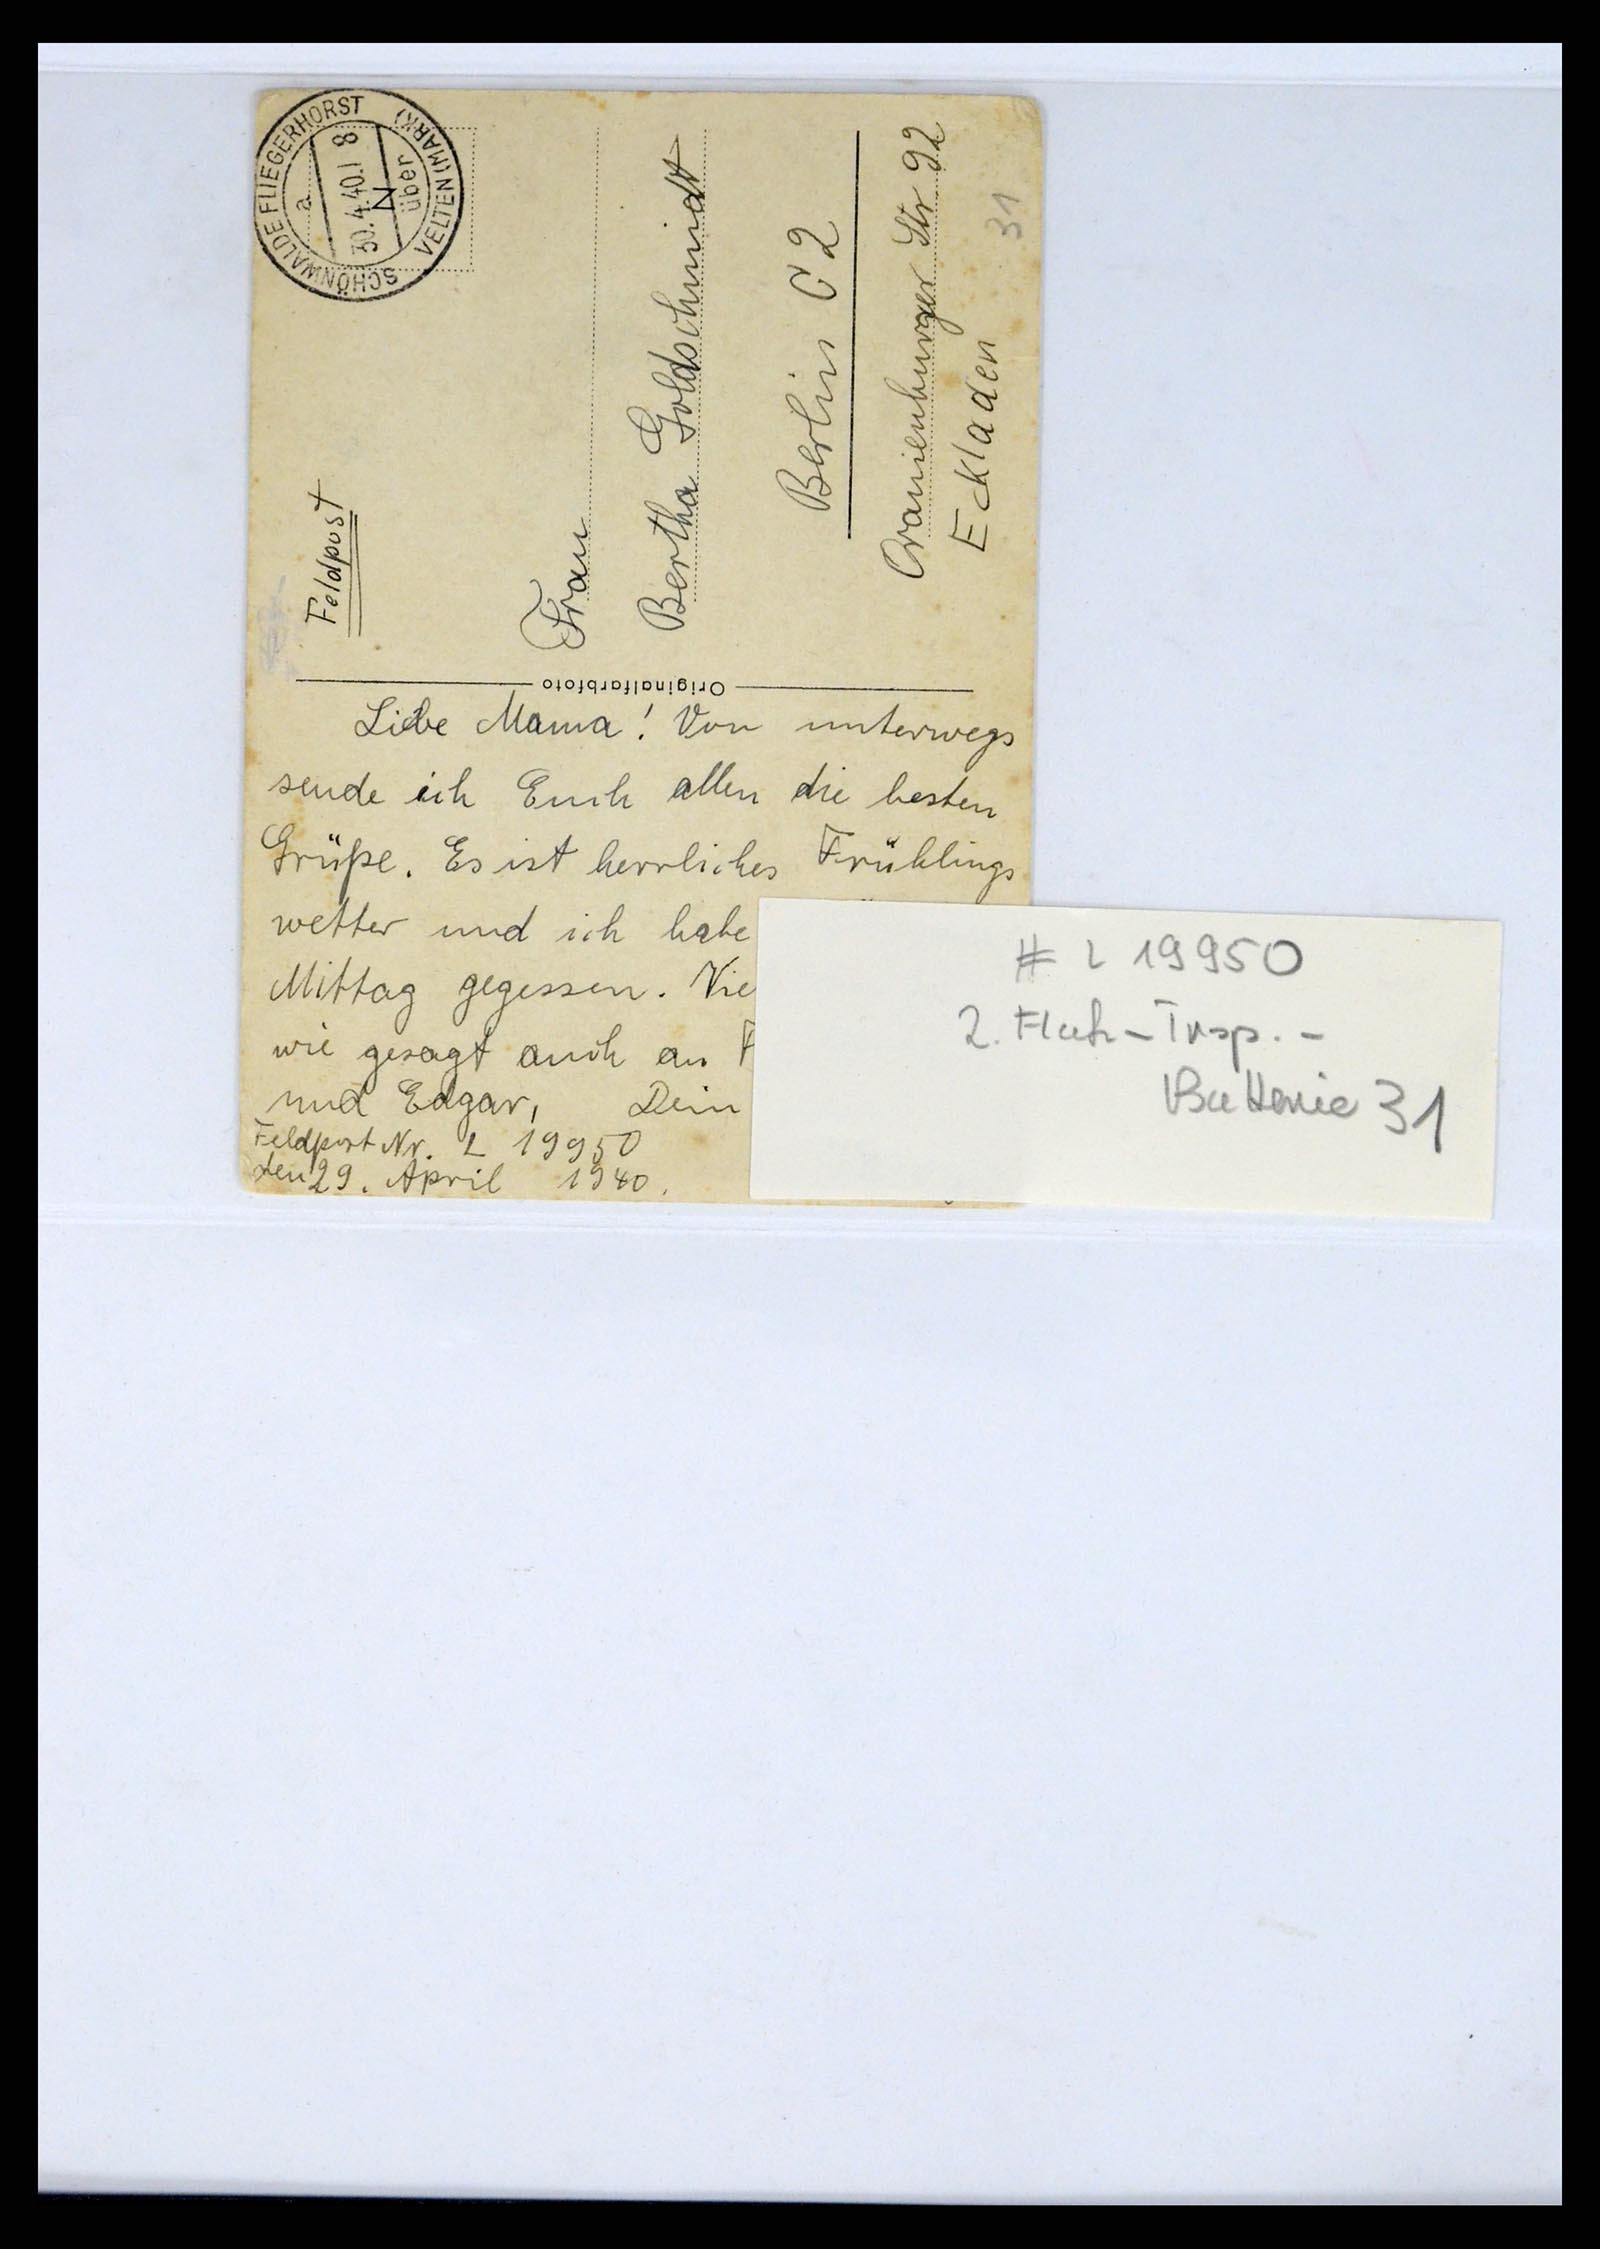 SCHÖNWALDE FLIEGERHORST
über
VELTEN (MARK)
a
30.4.40. 8
N
Feldpost
Frau
Bertha Goldschmidt
Berlin C 2
Oranienburger Str 92
Eckladen
31
Originalfarbfoto
Liebe Mama! Von unterwegs
sende ich Euch allen die besten
Grüße. Es ist herrliches Frühlings
wetter und ich habe
Mittag gegessen. Vie
wie gesagt auch an F
und Edgar, Dein
Feldpost Nr. L 19950
den 29. April 1940.
# L 19950
2. Flak-Trsp.-
Batterie 31